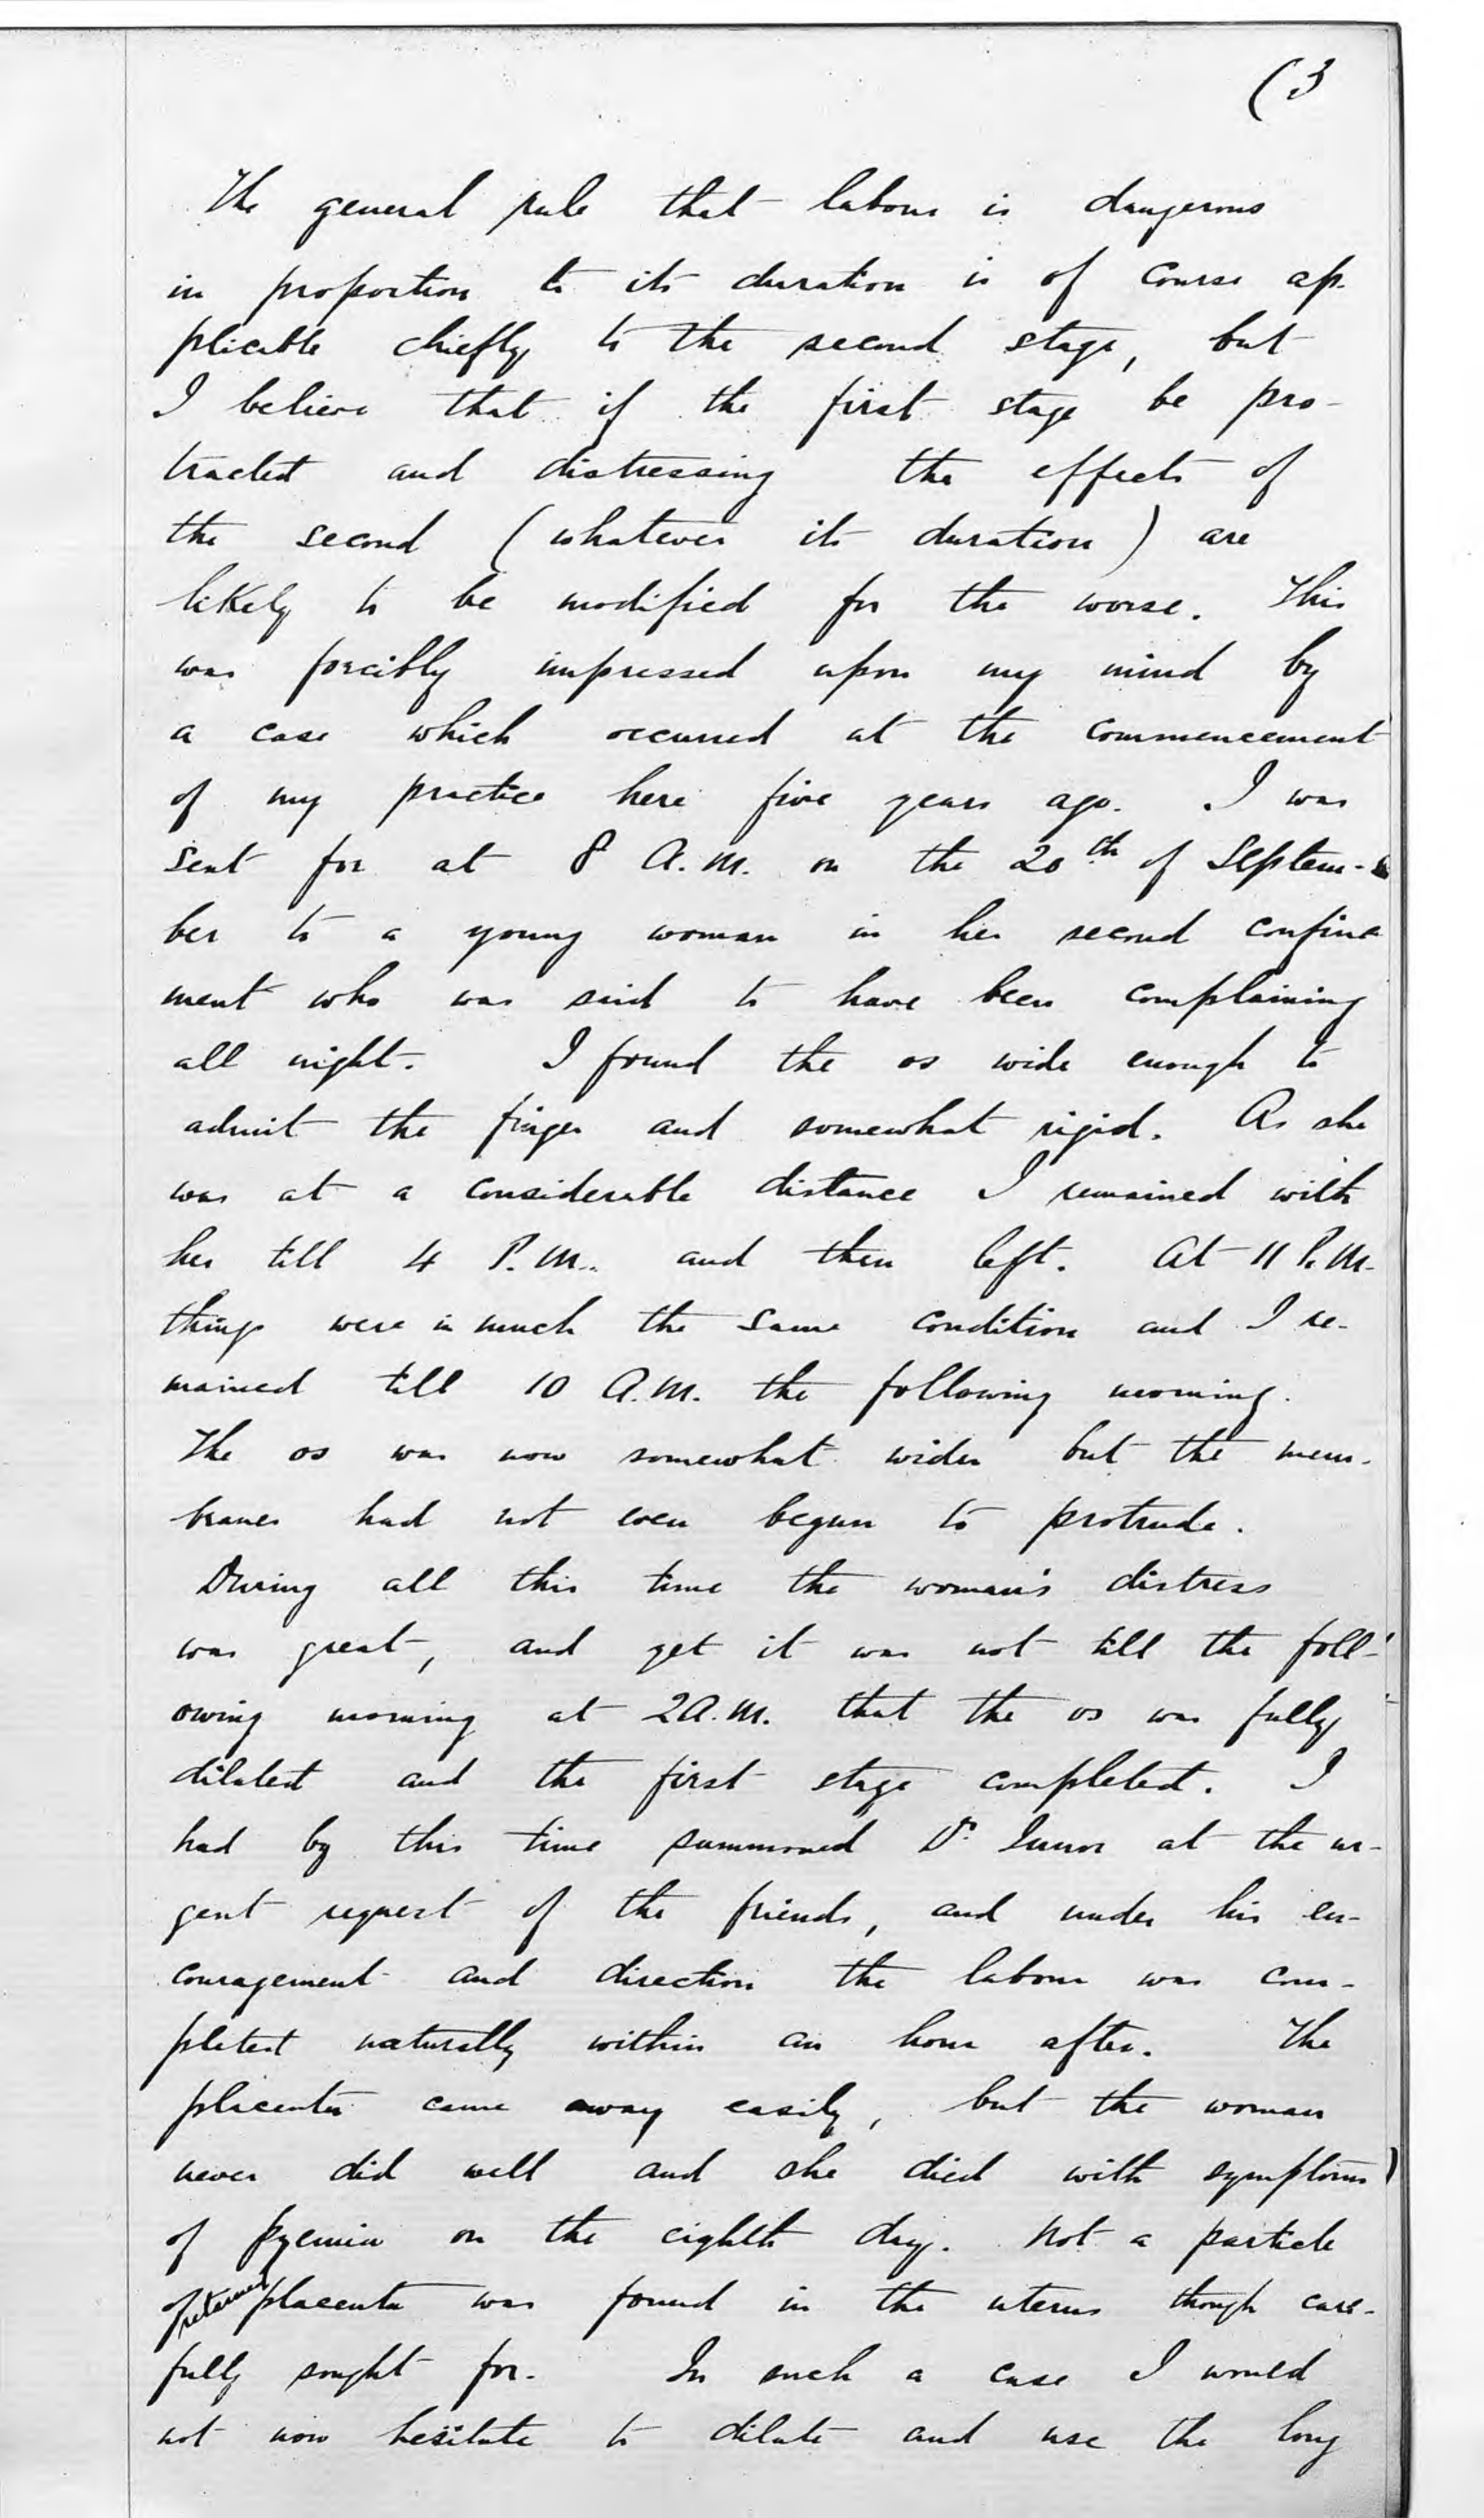 (3
The general rule that labour is dangerous
in proportion to its duration is of course ap-
plicable chiefly to the second stage, but
I believe that if the first stage be pro-
tracted and distressing the effects of
the second (whatever its duration) are
likely to be modified for the worse. This
was forcibly impressed upon my mind by
a case which occurred at the commencement
of my practice here five years ago. I was
sent for at 8 A.M. on the 20th of Septem-
ber to a young woman in her second confine
ment who was said to have been complaining
all night. I found the os wide enough to
admit the finger and somewhat rigid. As she
was at a considerable distance I remained with
her till 4 P.M. and then left. At 11 P.M.
things were in much the same condition and I re-
mained till 10 A.M. the following morning.
The os was now somewhat wider but the mem-
branes had not even begun to protrude.
During all this time the woman's distress
was great, and yet it was not till the foll-
owing morning at 2 A.M. that the os was fully
dilated and the first stage completed. I
had by this time summoned Dr at the ur-
gent request of the friends, and under his en-
couragement and direction the labour was com-
pleted naturally within an hour after. The
placenta came away easily, but the woman
never did well and she died with symptoms
of pyemia on the eighth day. Not a particle
of retained placenta was found in the uterus though care-
fully sought for. In such a case I would
not now hesitate to dilate and use the long